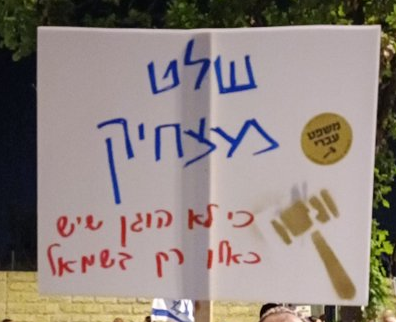 שלט
מצחיק
כי לא הוגן שיש
כאלו רק בשמאל
משפט
עברי